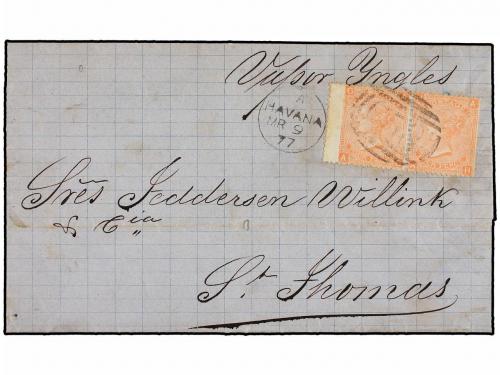 Vapor Yngles
A
HAVANA
MR 9
77
Srēs Jeddersen Willink
& Cia
St Thomas